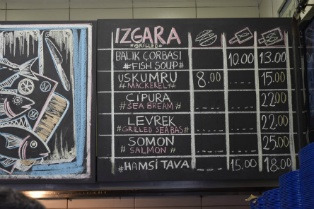 IZGARA
#GRILLED#
BALIK ÇORBASI 10.00 13.00
#FISH SOUP#
USKUMRU 8.00 15.00
#MACKEREL#
ÇIPURA 22.00
#SEA BREAM#
LEVREK 22.00
#GRILLED SEABAS#
SOMON 25.00
#SALMON#
#HAMSİ TAVA 15.00 18.00